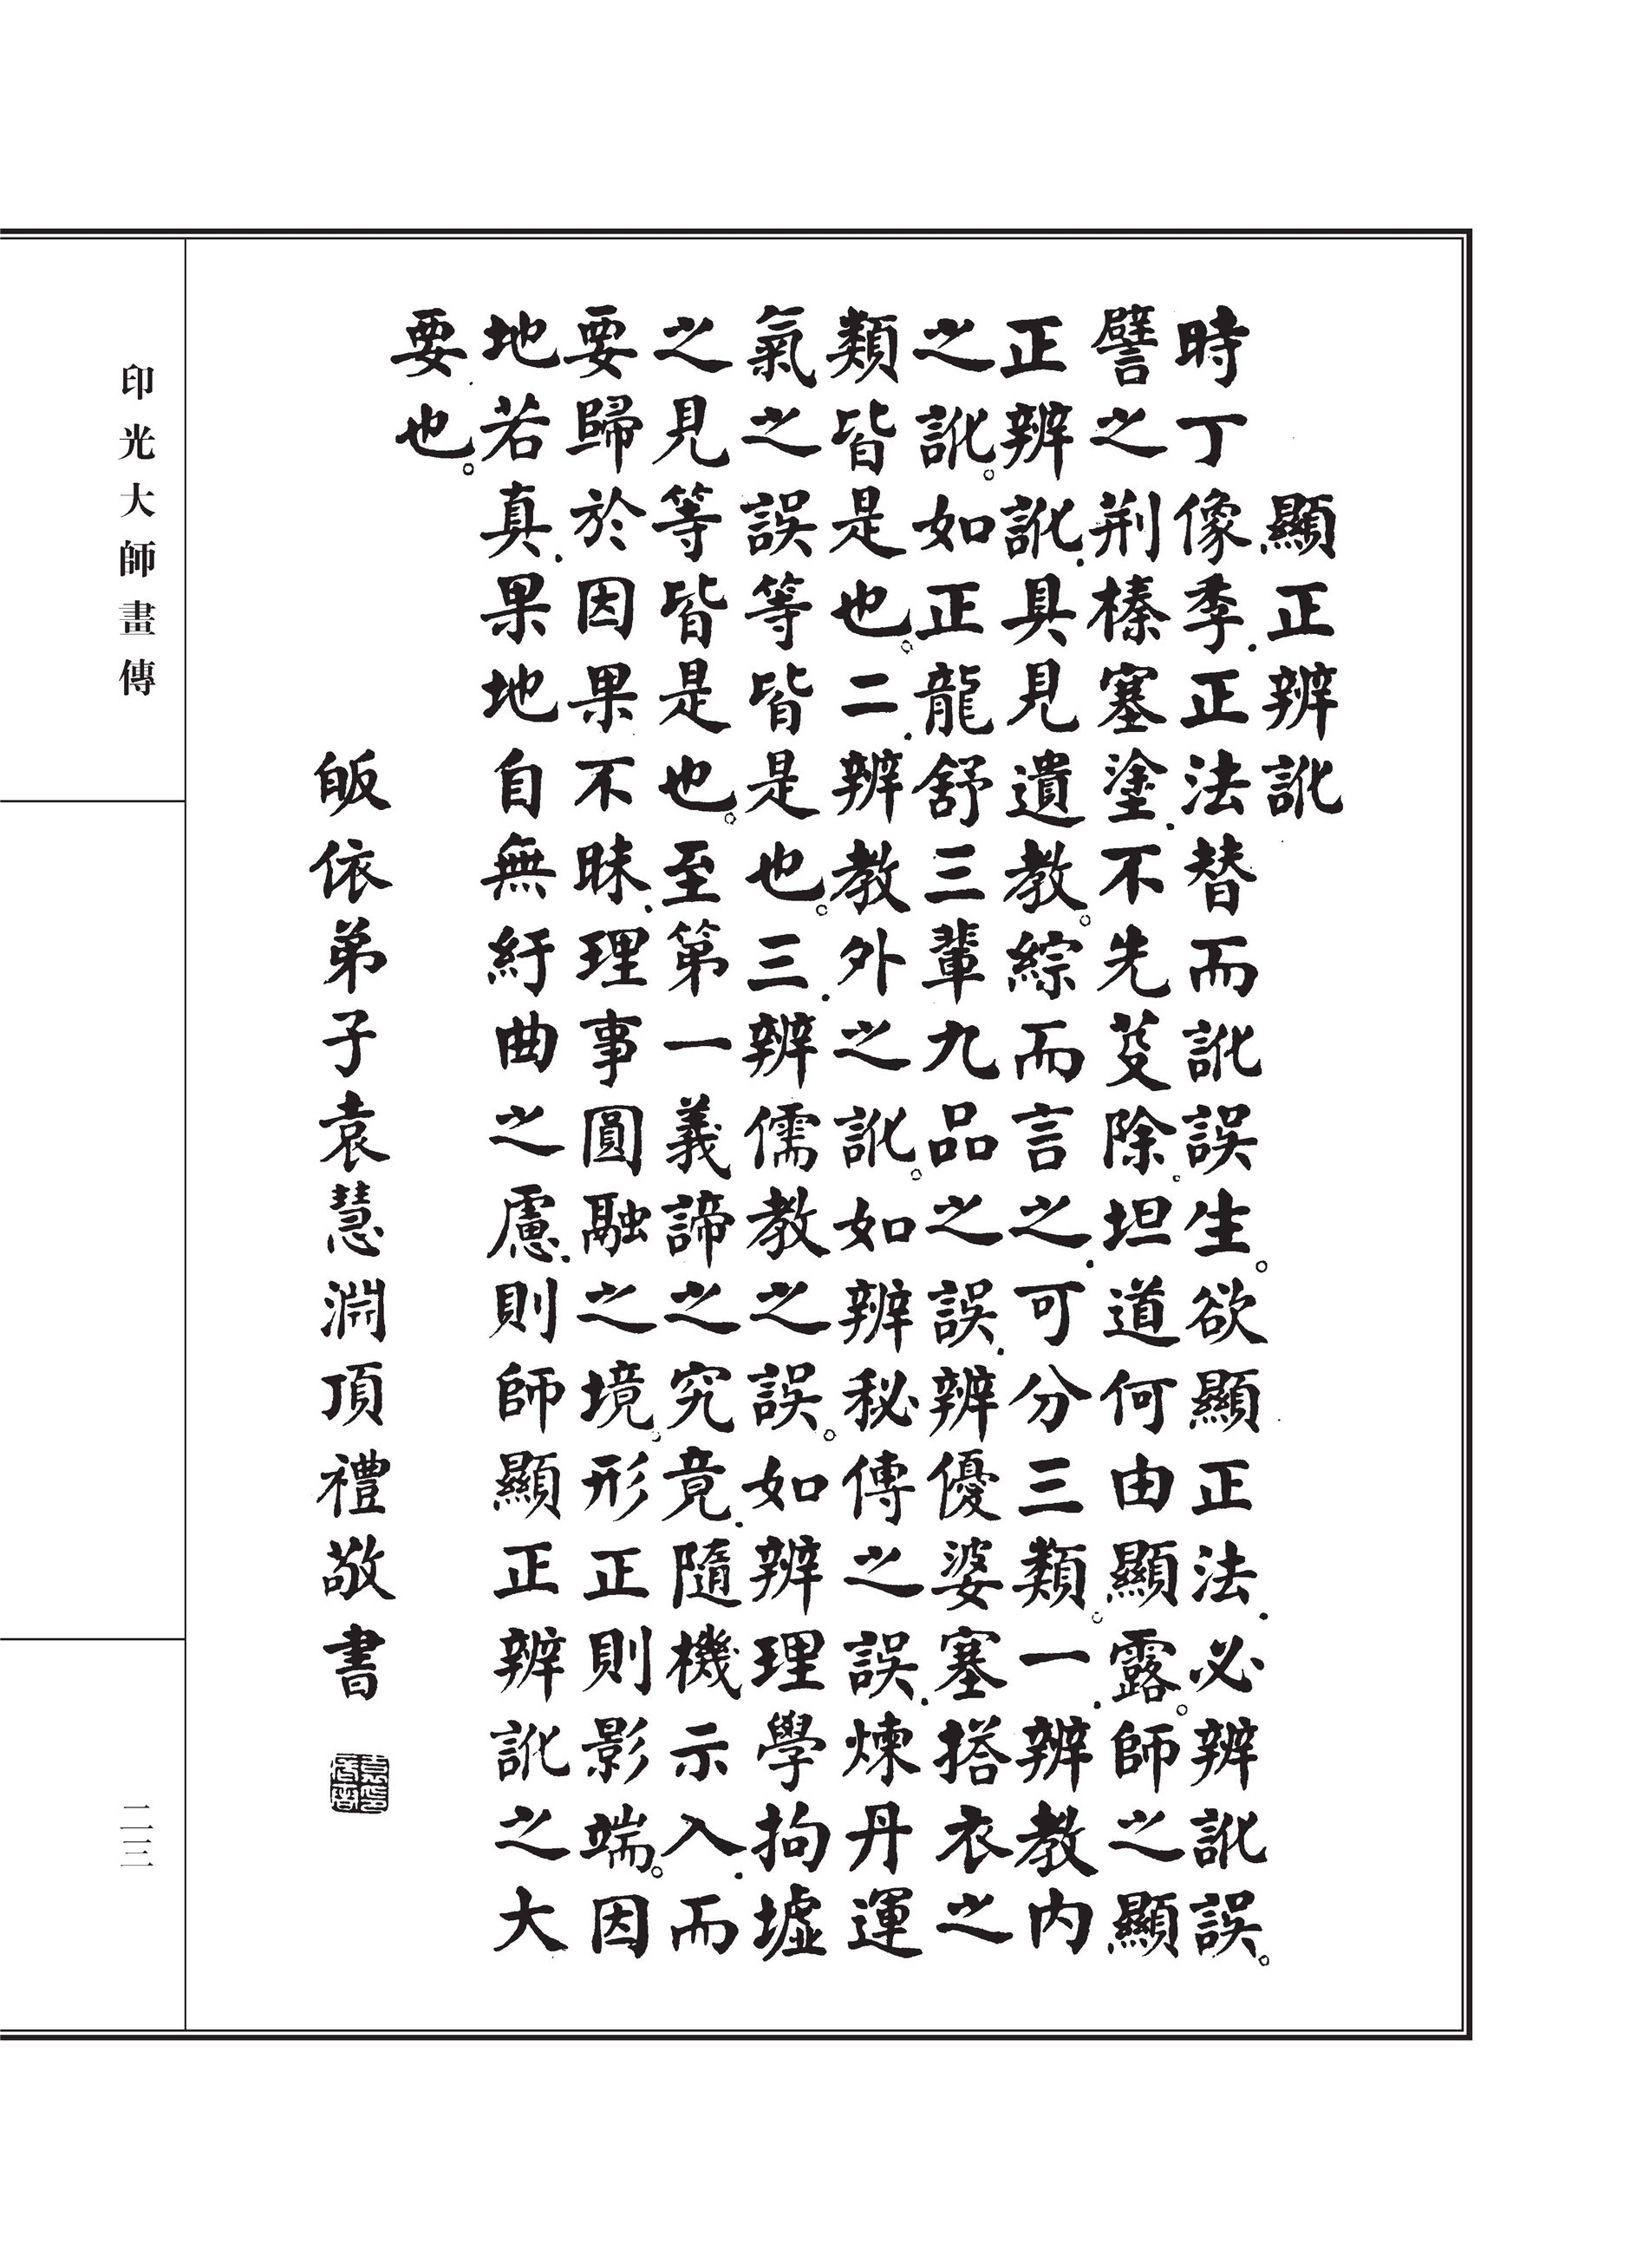 顯正辨訛
時丁像季.正法替而訛誤生。欲顯正法.必辨訛誤。
譬之荆榛塞塗.不先芟除。坦道何由顯露。師之顯
正辨訛.具見遺教。綜而言之.可分三類。一.辨教内
之訛。如正龍舒三輩九品之誤.辨優婆塞搭衣之
類皆是也。二.辨教外之訛。如辨秘傳之誤.煉丹運
氣之誤等皆是也。三.辨儒教之誤。如辨理學拘墟
之見等皆是也。至第一義諦之究竟.隨機示入.而
要歸於因果不昧.理事圓融之境。形正則影端。因
地若真.果地自無紆曲之慮.則師顯正辨訛之大
要也。
皈依弟子袁慧淵頂禮敬書
印光大師畫傳
二三